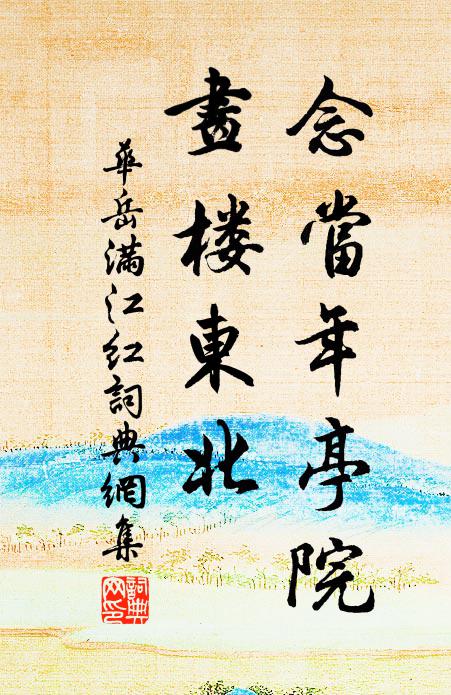 念當年亭院
畫楼東北
華岳滿江红詞典網集
詞典网印